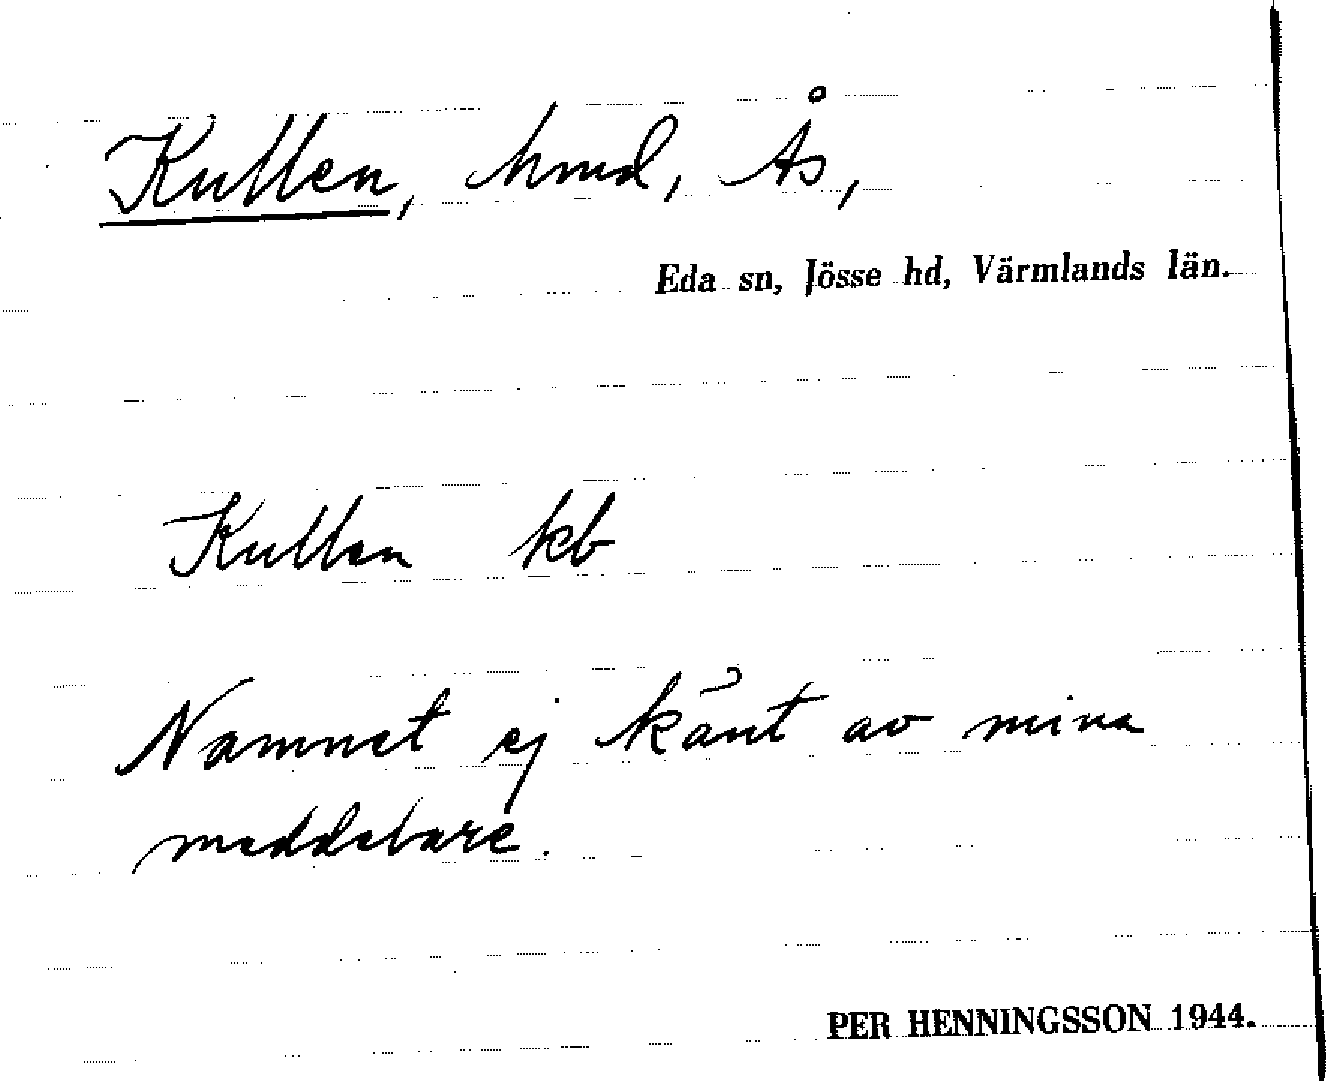 Kullen, hmd, Ås,
Eda sn, Jösse hd, Värmlands län.
Kullen kb
Namnet ej känt av mina
meddelare.
PER HENNINGSSON 1944.